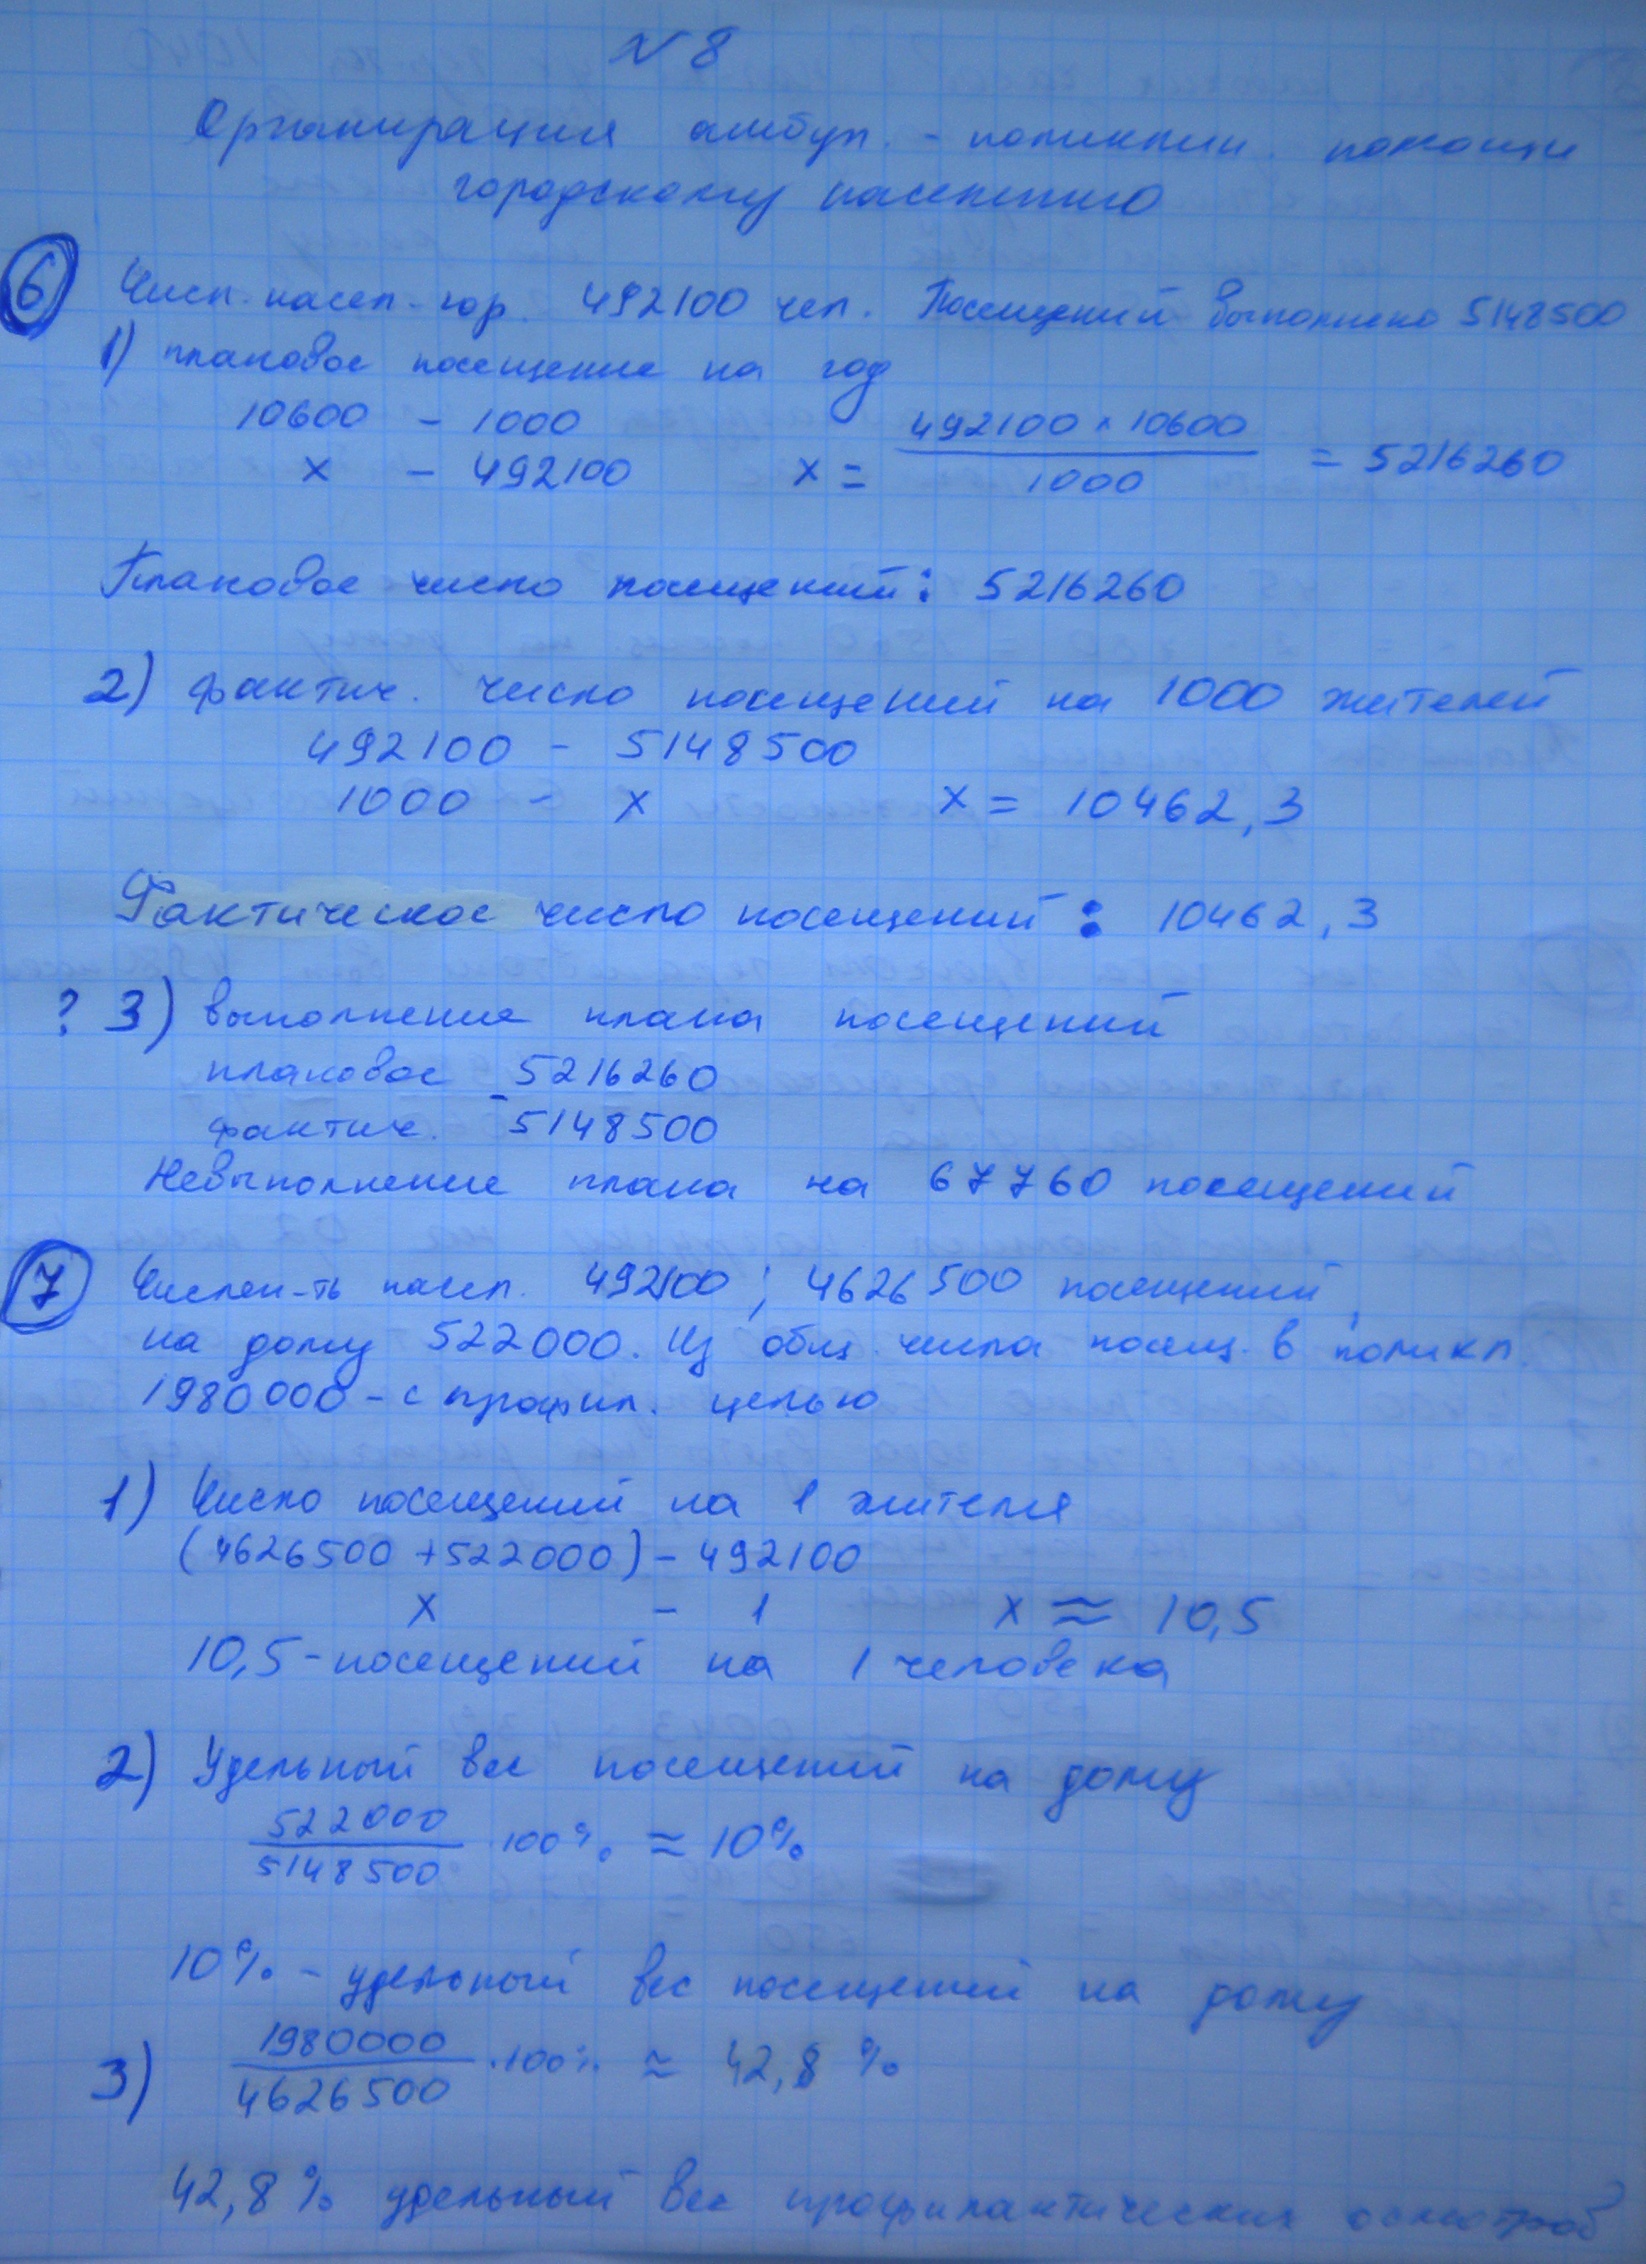 N 8
Организация амбул. - поликлин. помощи
городскому населению
6 Числ. насел. - гор. 492100 чел. Посещений выполнено 5148500
1) плановое посещение на год
10600 - 1000
492100 · 10600
x - 492100 x = 1000 = 5216260
Плановое число посещений: 5216260
2) фактич. число посещений на 1000 жителей
492100 - 5148500
1000 - x x = 10462,3
Фактическое число посещений: 10462,3
? 3) выполнение плана посещений
плановое 5216260
фактич. - 5148500
Невыполнение плана на 67760 посещений
7 Числен-ть насел. 492100; 4626500 посещений,
на дому 522000. Из общ. числа посещ. в поликл.
1980000 - с профил. целью
1) Число посещений на 1 жителя
(4626500 + 522000) - 492100
x - 1 x ≈ 10,5
10,5 - посещений на 1 человека
2) Удельный вес посещений на дому
522000
5148500 · 100% ≈ 10%
10% - удельный вес посещений на дому
3) 1980000
4626500 · 100% ≈ 42,8 %
42,8% удельный вес профилактических осмотров